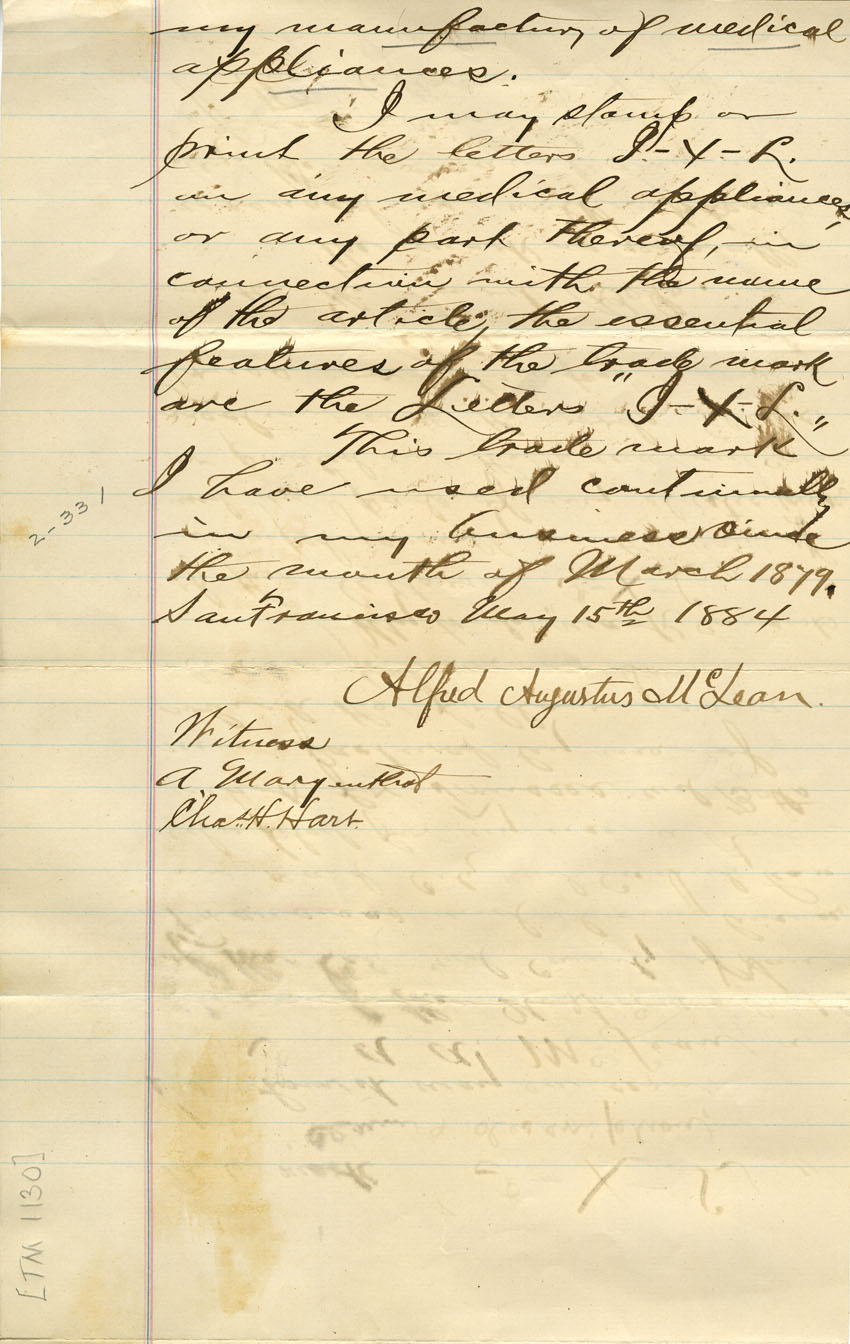 my manufactury of medical
appliances.
I may stamp or
print the letters I-X-L.
on any medical appliances,
or any part thereof, in
connection with the name
of the article, the essential
features of the trade mark
are the Letters "I-X-L."
This trade mark
I have used continually
in my business since
the month of March 1879.
San Francisco May 15th 1884
Alfred Augustus McLean.
Witness
A.
Chas. H. Hart.
2-331
[TM 1130]